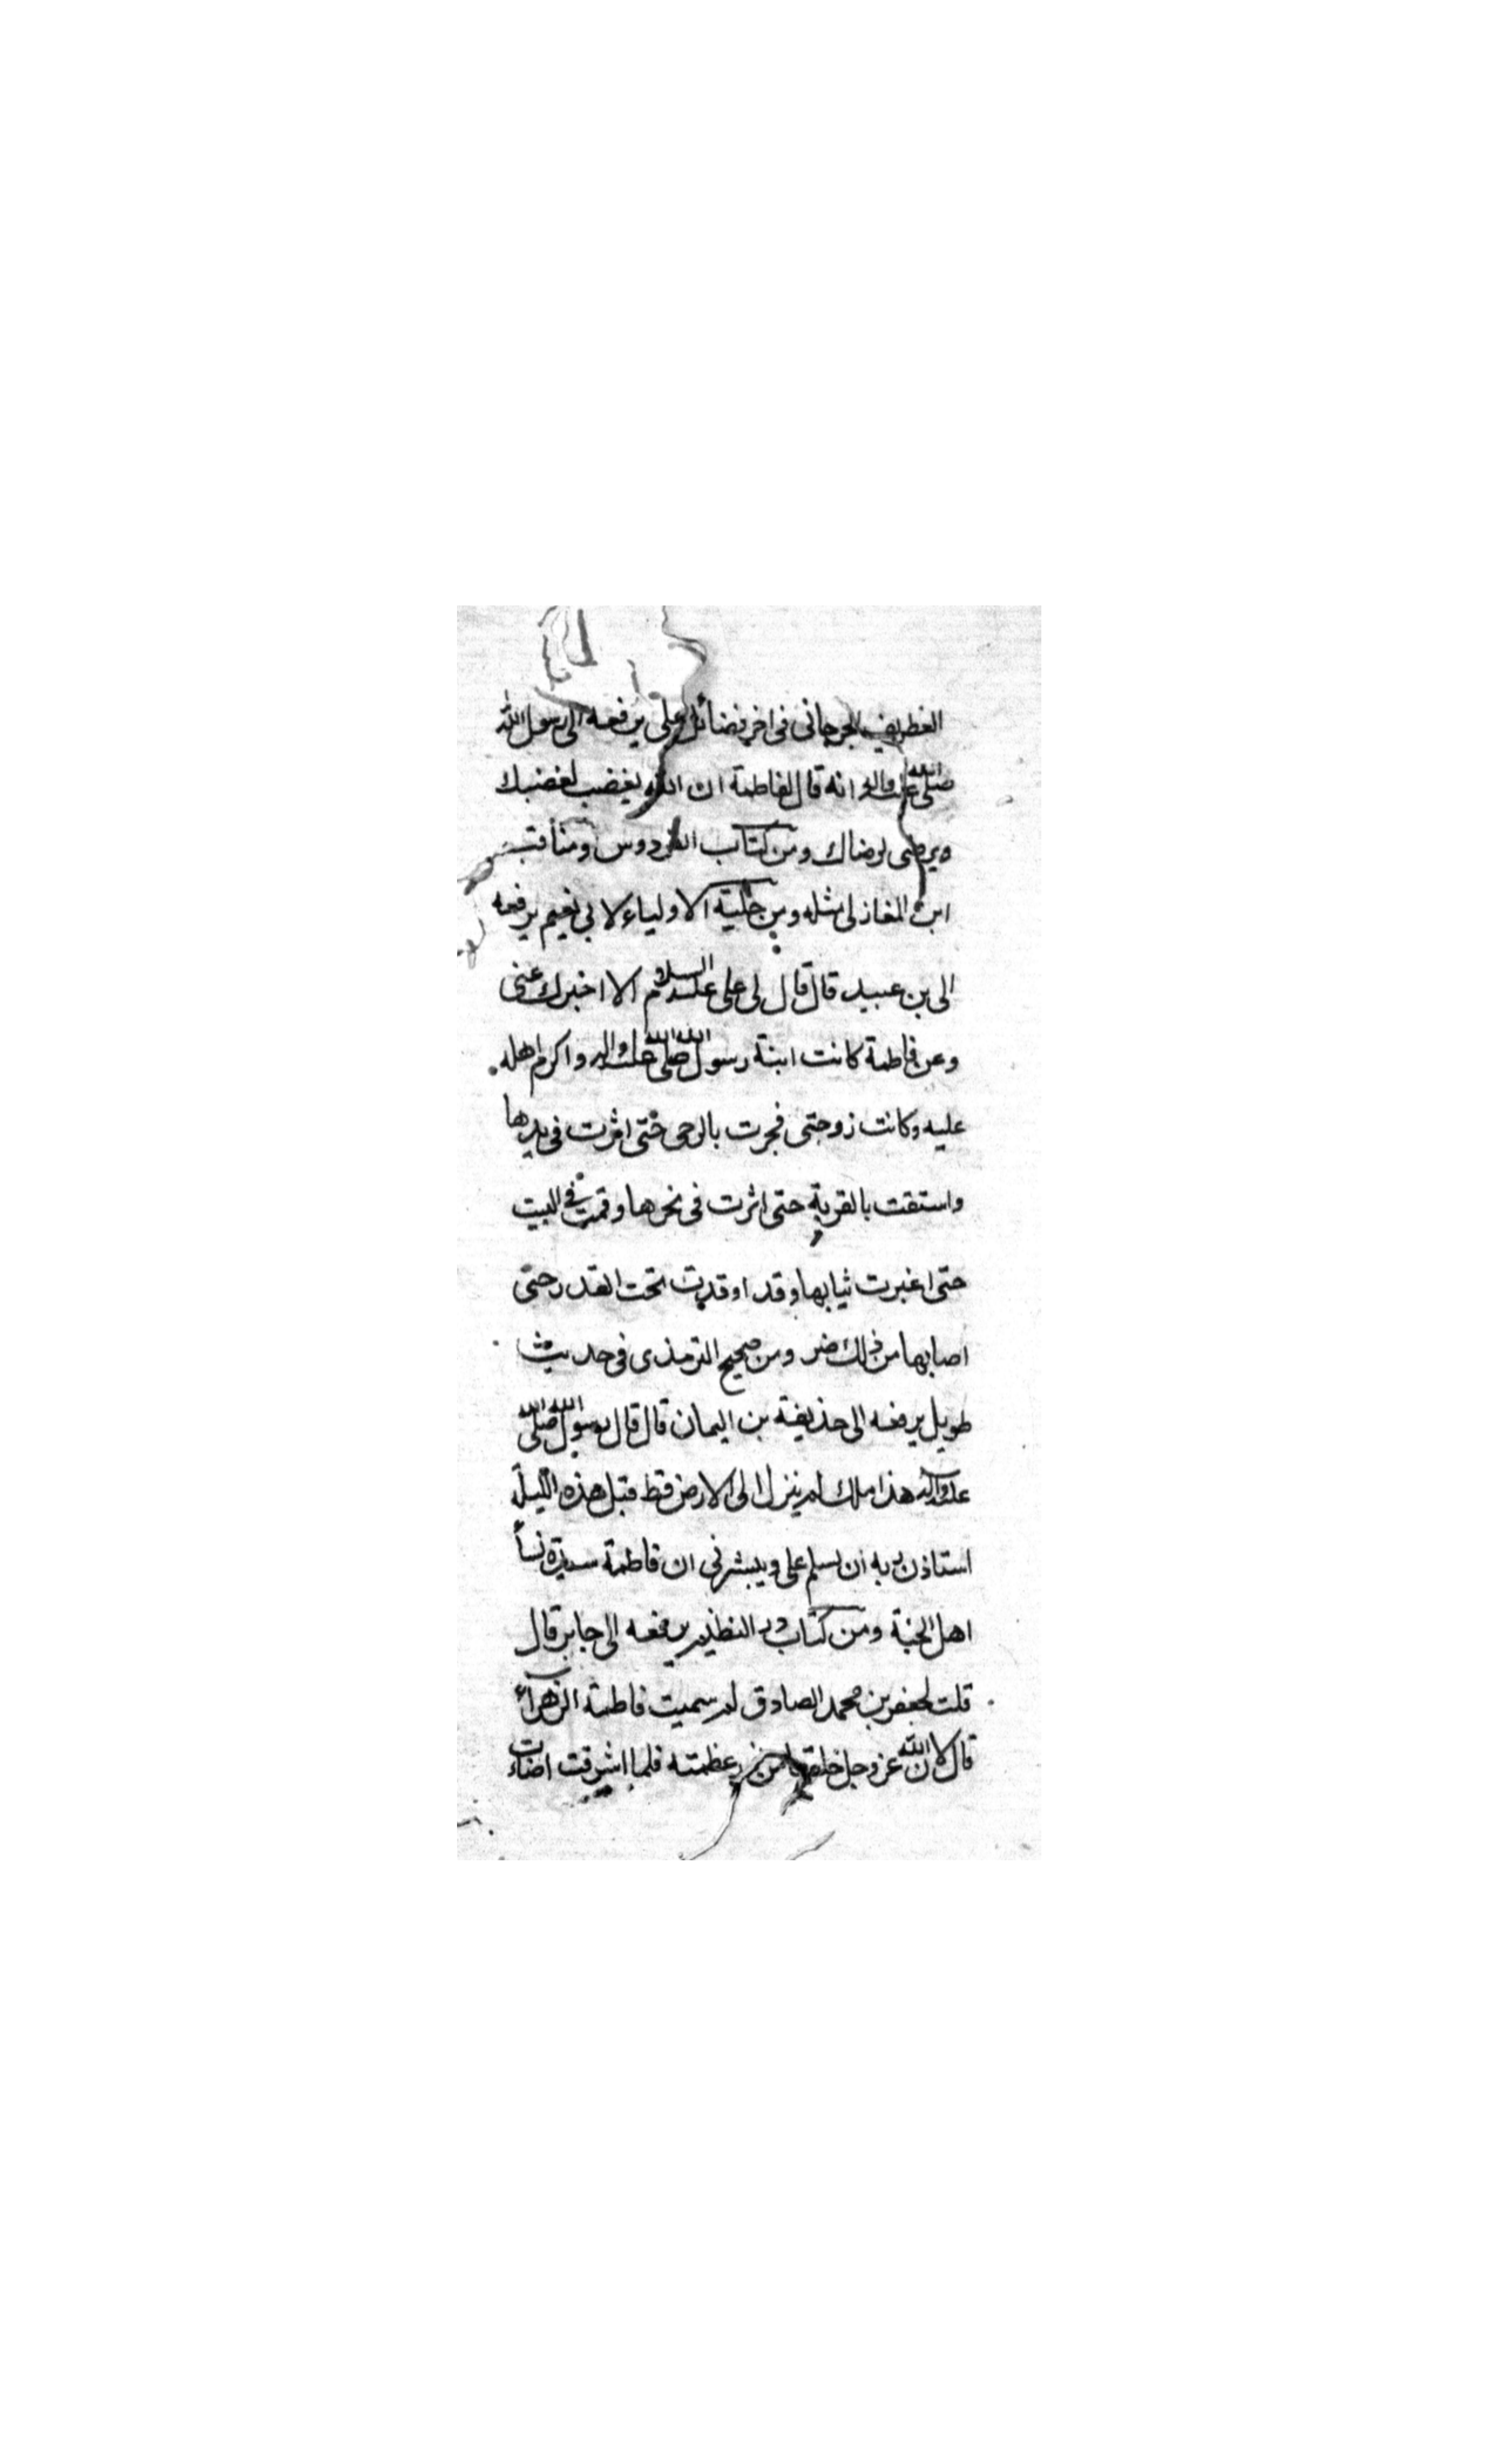 الغطريف الجرجاني في اخر فضائل علي يرفعه الى رسول الله
صلى الله عليه واله انه قال لفاطمة ان الله يغضب لغضبك
ويرضى لرضاك ومن كتاب الفردوس ومناقب
ابن المغازلى مثله ومن حلية الاولياء لابي نعيم يرفعه
الى بن عبيد قال قال لى على عليه السلام الا اخبرك عنى
وعن فاطمة كانت ابنة رسول الله صلى الله عليه واله واكرم اهله
عليه وكانت زوجتى فجرت بالرحى حتى اثرت فى يدها
واستقت بالقربة حتى اثرت فى نحرها وقمت في البيت
حتى اغبرت ثيابها وقد اوقدت تحت القدر حتى
اصابها من ذلك ضر ومن صحيح الترمذى فى حديث
طويل يرفعه الى حذيفة بن اليمان قال قال رسول الله صلى الله
عليه واله هذا ملك لم ينزل الى الارض قط قبل هذه الليلة
استاذن ربه ان يسلم على ويبشرنى ان فاطمة سيدة نسآ
اهل الجنة ومن كتاب در النظيم يرفعه الى جابر قال
قلت لجعفر بن محمد الصادق لم سميت فاطمة الزهرآء
قال لان الله عز وجل خلقها من نور عظمته فلما اشرقت اضاءت